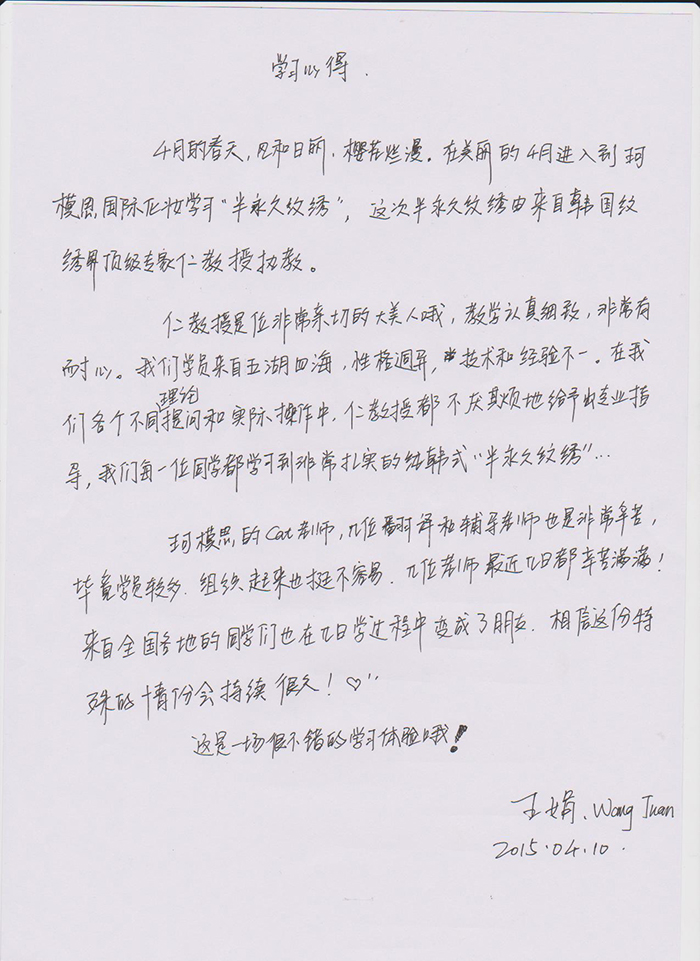 学习心得.
4月的春天,风和日丽,樱花烂漫。在美丽的4月进入到珂
模思国际化妆学习“半永久纹绣”,这次半永久纹绣由来自韩国纹
绣界顶级专家仁教授执教。
仁教授是位非常亲切的大美人哦,教学认真细致,非常有
耐心。我们学员来自五湖四海,性格迥异,技术和经验不一。在我
理论
们各个不同提问和实际操作中,仁教授都不厌其烦地给予出专业指
导,我们每一位同学都学习到非常扎实的纯韩式“半永久纹绣”…
珂模思的Cat老师,几位翻译和辅导老师也是非常辛苦,
毕竟学员较多.组织起来也挺不容易.几位老师最近几日都辛苦满满!
来自全国各地的同学们也在几日学过程中变成了朋友.相信这份特
殊的情份会持续很久!♡
这是一场很不错的学习体验哦!
王娟.Wang Juan
2015.04.10.